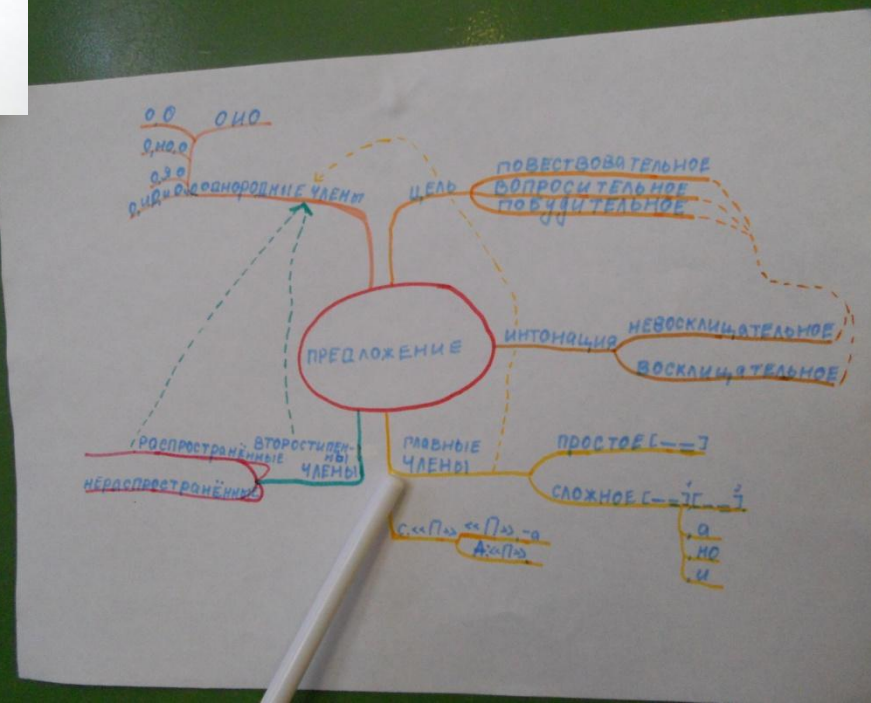 О,О
О И О
О,НО,О
О,ДО
ОДНОРОДНЫЕ ЧЛЕНЫ
ЦЕЛЬ
ПОВЕСТВОВАТЕЛЬНОЕ
ВОПРОСИТЕЛЬНОЕ
ПОБУДИТЕЛЬНОЕ
ПРЕДЛОЖЕНИЕ
ИНТОНАЦИЯ
НЕВОСКЛИЦАТЕЛЬНОЕ
ВОСКЛИЦАТЕЛЬНОЕ
РАСПРОСТРАНЁННЫЕ
НЕРАСПРОСТРАНЁННЫЕ
ВТОРОСТИПЕН-
НЫ
ЧЛЕНЫ
ГЛАВНЫЕ
ЧЛЕНЫ
ПРОСТОЕ [– =]
СЛОЖНОЕ [– =] [– =]
,а
,но
,и
С.«П»
«П», -а
А: «П»